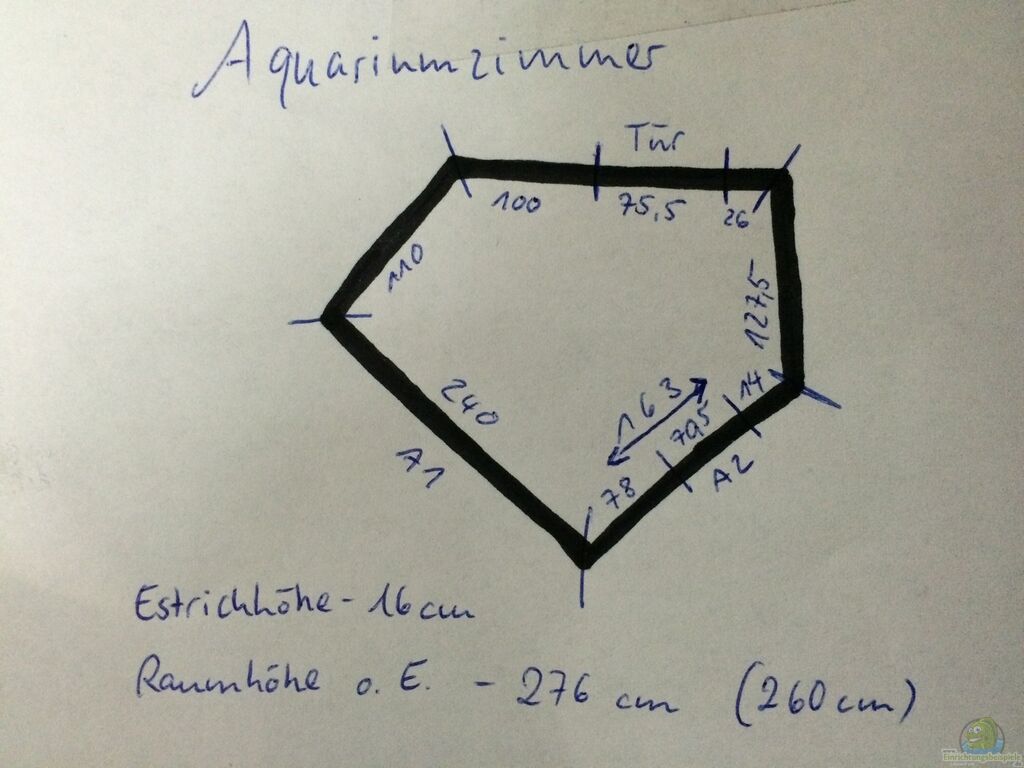 Aquariumzimmer
Tür
100 75,5 26
110
127,5
240
163
14
79,5
78
A1
A2
Estrichhöhe - 16 cm
Raumhöhe o. E. - 276 cm (260 cm)
Einrichtungsbeispiele